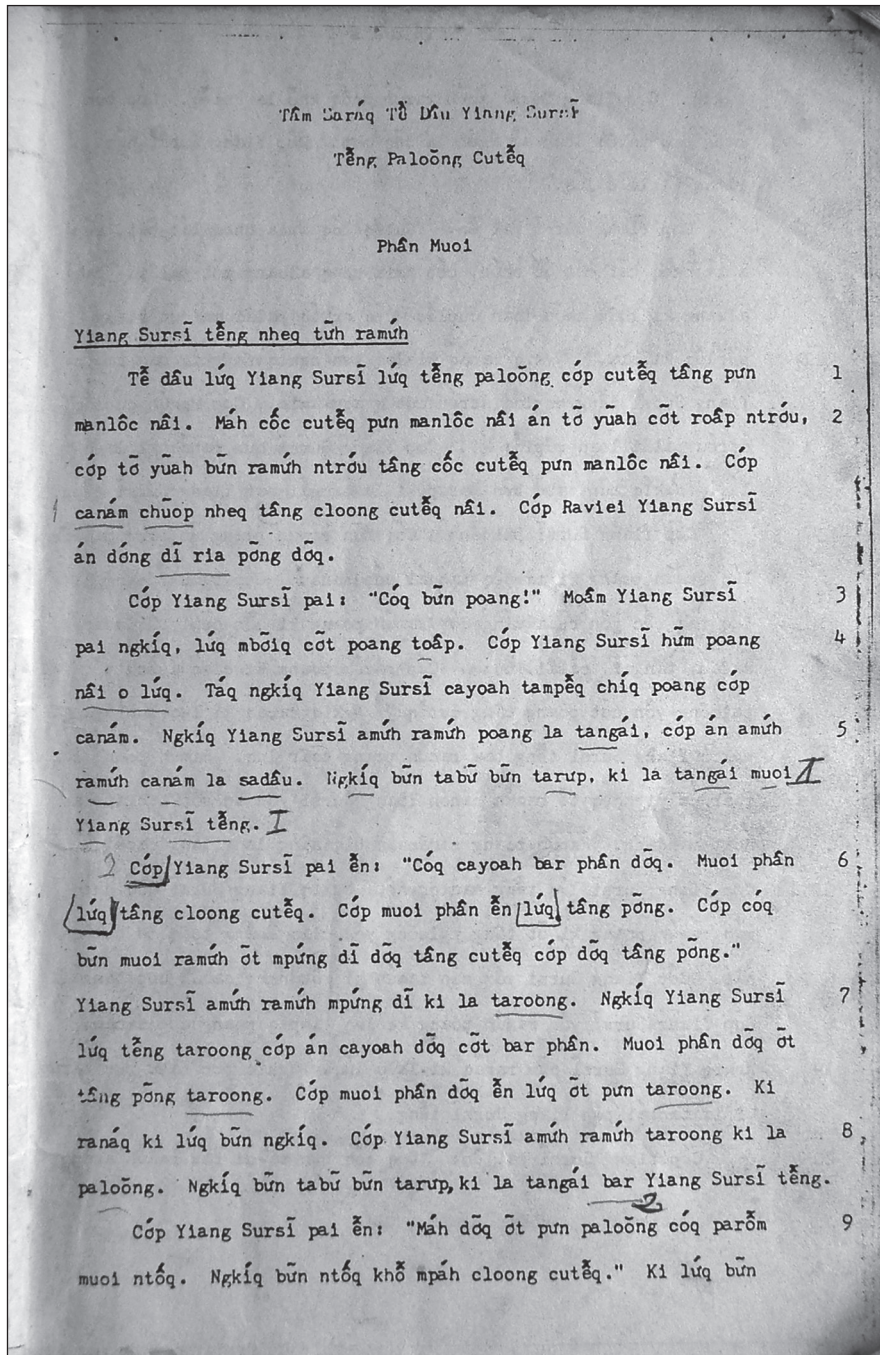 Tâm Saráq Tễ Dâu Yiang Sursĩ
Tễng Paloõng Cutễq
Phân Muoi
Yiang Sursĩ tễng nheq tữh ramứh
Tễ dâu lứq Yiang Sursĩ lứq tễng paloõng cớp cutễq tâng pưn 1
manlôc nâi. Máh cốc cutễq pưn manlôc nâi án tỡ yũah cỡt roâp ntrớu, 2
cớp tỡ yũah bữn ramứh ntrớu tâng cốc cutễq pưn manlôc nâi. Cớp
canám chũop nheq tâng cloong cutễq nâi. Cớp Raviei Yiang Sursĩ
án dớng dĩ ria põng dỡq.
Cớp Yiang Sursĩ pai: "Cóq bữn poang!" Moâm Yiang Sursĩ 3
pai ngkíq, lứq mbỡiq cỡt poang toâp. Cớp Yiang Sursĩ hữm poang 4
nâi o lứq. Táq ngkíq Yiang Sursĩ cayoah tampễq chíq poang cớp
canám. Ngkíq Yiang Sursĩ amứh ramứh poang la tangái, cớp án amứh 5
ramứh canám la sadâu. Ngkíq bữn tabữ bữn tarưp, ki la tangái muoi I
Yiang Sursĩ tễng. I
2 Cớp Yiang Sursĩ pai ễn: "Cóq cayoah bar phân dỡq. Muoi phân 6
lứq tâng cloong cutễq. Cớp muoi phân ễn lứq tâng põng. Cớp cóq
bữn muoi ramứh ỡt mpứng dĩ dỡq tâng cutễq cớp dỡq tâng põng."
Yiang Sursĩ amứh ramứh mpứng dĩ ki la taroong. Ngkíq Yiang Sursĩ 7
lứq tễng taroong cớp án cayoah dỡq cỡt bar phân. Muoi phân dỡq ỡt
tâng põng taroong. Cớp muoi phân dỡq ễn lứq ỡt pưn taroong. Ki
ranáq ki lứq bữn ngkíq. Cớp Yiang Sursĩ amứh ramứh taroong ki la 8
paloõng. Ngkíq bữn tabữ bữn tarưp, ki la tangái bar Yiang Sursĩ tễng.
2
Cớp Yiang Sursĩ pai ễn: "Máh dỡq ỡt pưn paloõng cóq parỗm 9
muoi ntốq. Ngkíq bữn ntốq khỗ mpáh cloong cutễq." Ki lứq bữn